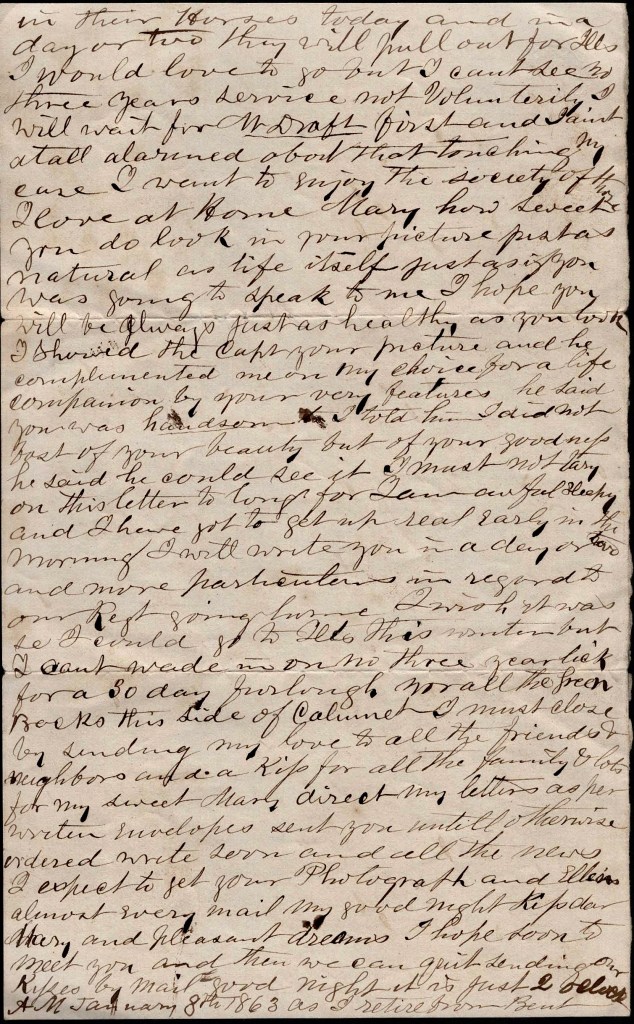 in their Horses today and in a
day or two they will pull out for Ills
I would love to go but I cant see no
three years service not Volunterily I
will wait for W Draft first and I aint
atall alarmed about that touching my
case I want to enjoy the society of those
I love at Home Mary how sweet
you do look in your picture just as
natural as life itself just as if you
was going to speak to me I hope you
will be always just as healthy as you look
I showed the Capt your picture and he
complimented me on my choice for a life
companion by your very features he said
you was handsom I told him I did not
bost of your beauty but of your goodness
he said he could see it I must not tary
on this letter to long for I am awful sleepy
and I have got to get up real Early in the
morning I will write you in a day or two
and more particulars in regard to
our Regt going home I wish it was
so I could go to Ills this winter but
I cant wade in on no three year lick
for a 30 day furlough nor all the Green
Backs this side of Calumet I must close
by sending my love to all the friends &
neighbors and a Kiss for all the family & lots
for my sweet Mary direct my letters as per
writen Envelopes sent you untill otherwise
ordered write soon and all the news
I expect to get your Photograph and Ellens
almost Every mail my good night Kiss dar
Mary and pleasant dreams I hope soon to
meet you and then we can quit sending our
Kisses by mail good night it is just 2 oclock
A M January 8th 1863 as I retire from Bent